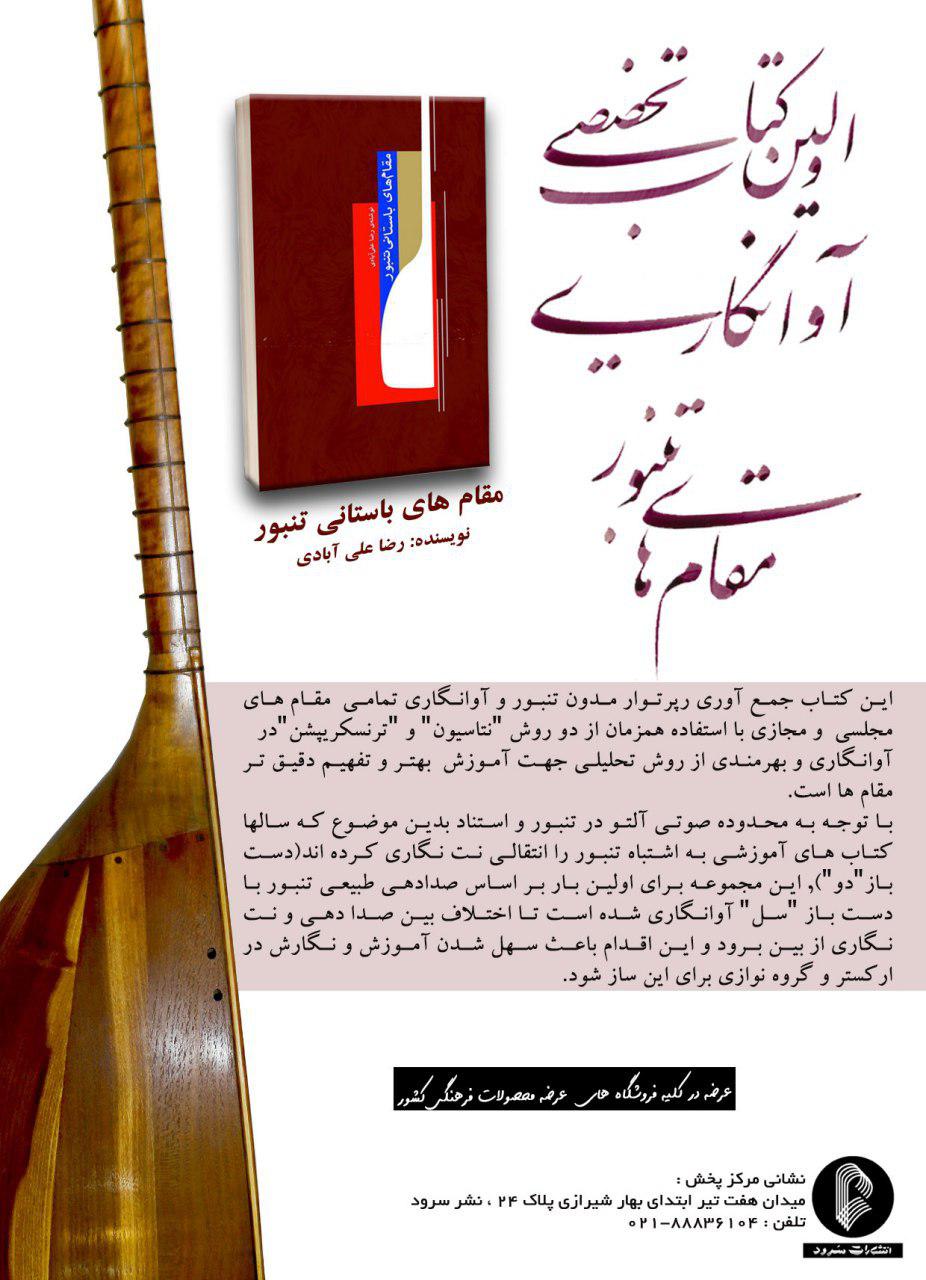 اولین کتاب تخصصی
آوانگاری
مقام های تنبور
مقام‌های باستانی تنبور
نوشته‌ی رضا علی‌آبادی
مقام های باستانی تنبور
نویسنده: رضا علی آبادی
این کتاب جمع آوری رپرتوار مدون تنبور و آوانگاری تمامی مقام های
مجلسی و مجازی با استفاده همزمان از دو روش "نتاسیون" و "ترنسکریپشن"در
آوانگاری و بهرمندی از روش تحلیلی جهت آموزش بهتر و تفهیم دقیق تر
مقام ها است.
با توجه به محدوده صوتی آلتو در تنبور و استناد بدین موضوع که سالها
کتاب های آموزشی به اشتباه تنبور را انتقالی نت نگاری کرده اند(دست
باز"دو"), این مجموعه برای اولین بار بر اساس صدادهی طبیعی تنبور با
دست باز "سل" آوانگاری شده است تا اختلاف بین صدا دهی و نت
نگاری از بین برود و این اقدام باعث سهل شدن آموزش و نگارش در
ارکستر و گروه نوازی برای این ساز شود.
عرضه در کلیه فروشگاه های عرضه محصولات فرهنگی کشور
نشانی مرکز پخش :
میدان هفت تیر ابتدای بهار شیرازی پلاک ۲۴ ، نشر سرود
تلفن : ۸۸۸۳۶۱۰۴-۰۲۱
انتشارات سرود